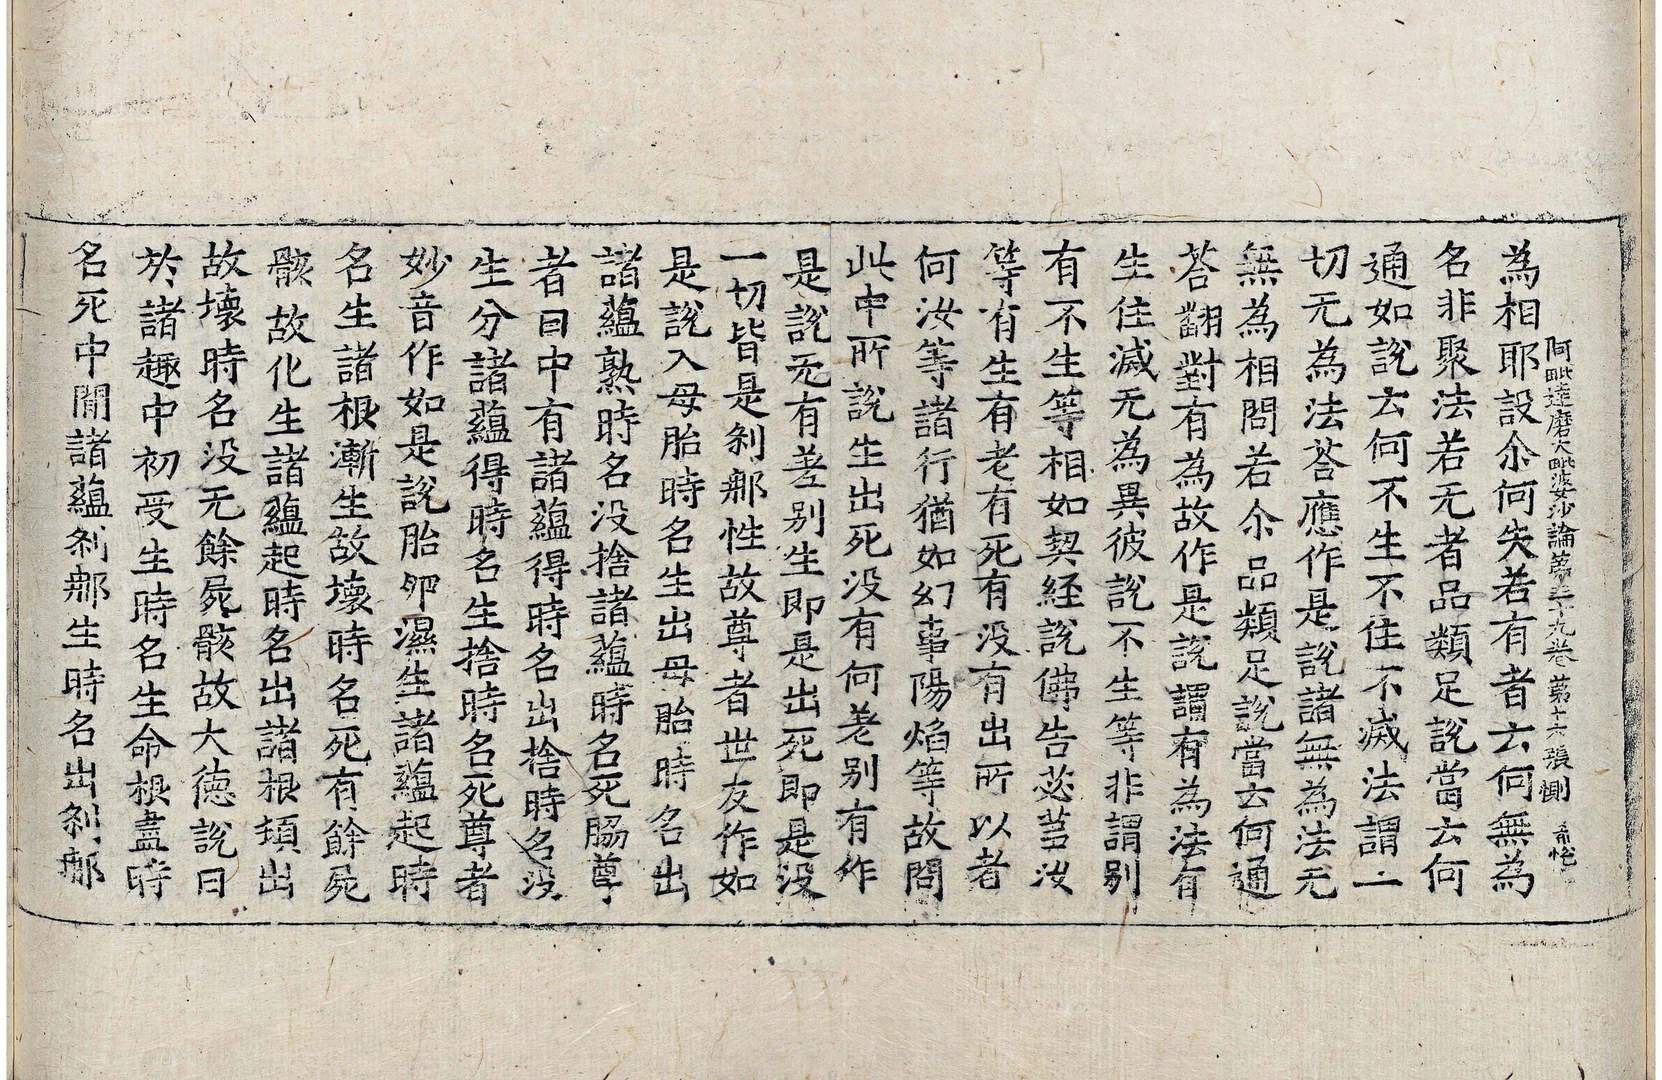 阿毗達磨大毗婆沙論第三十九卷 第十六張 惻
為相耶設尒何失若有者云何無為
名非聚法若无者品類足說當云何
通如說云何不生不住不滅法謂一
切无為法荅應作是說諸無為法无
無為相問若尒品類足說當云何通
荅翻對有為故作是說謂有為法有
生住滅无為異彼說不生等非謂别
有不生等相如契経說佛告苾芻汝
等有生有老有死有没有出所以者
何汝等諸行猶如幻事陽焰等故問
此中所說生出死没有何差别有作
是說无有差别生即是出死即是没
一切皆是刹那性故尊者世友作如
是說入母胎時名生出母胎時名出
諸蘊熟時名没捨諸蘊時名死脇尊
者曰中有諸蘊得時名出捨時名没
生分諸蘊得時名生捨時名死尊者
妙音作如是說胎卵濕生諸蘊起時
名生諸根漸生故壞時名死有餘屍
骸故化生諸蘊起時名出諸根頓出
故壞時名没无餘屍骸故大德說曰
於諸趣中初受生時名生命根盡時
名死中閒諸蘊刹那生時名出刹那